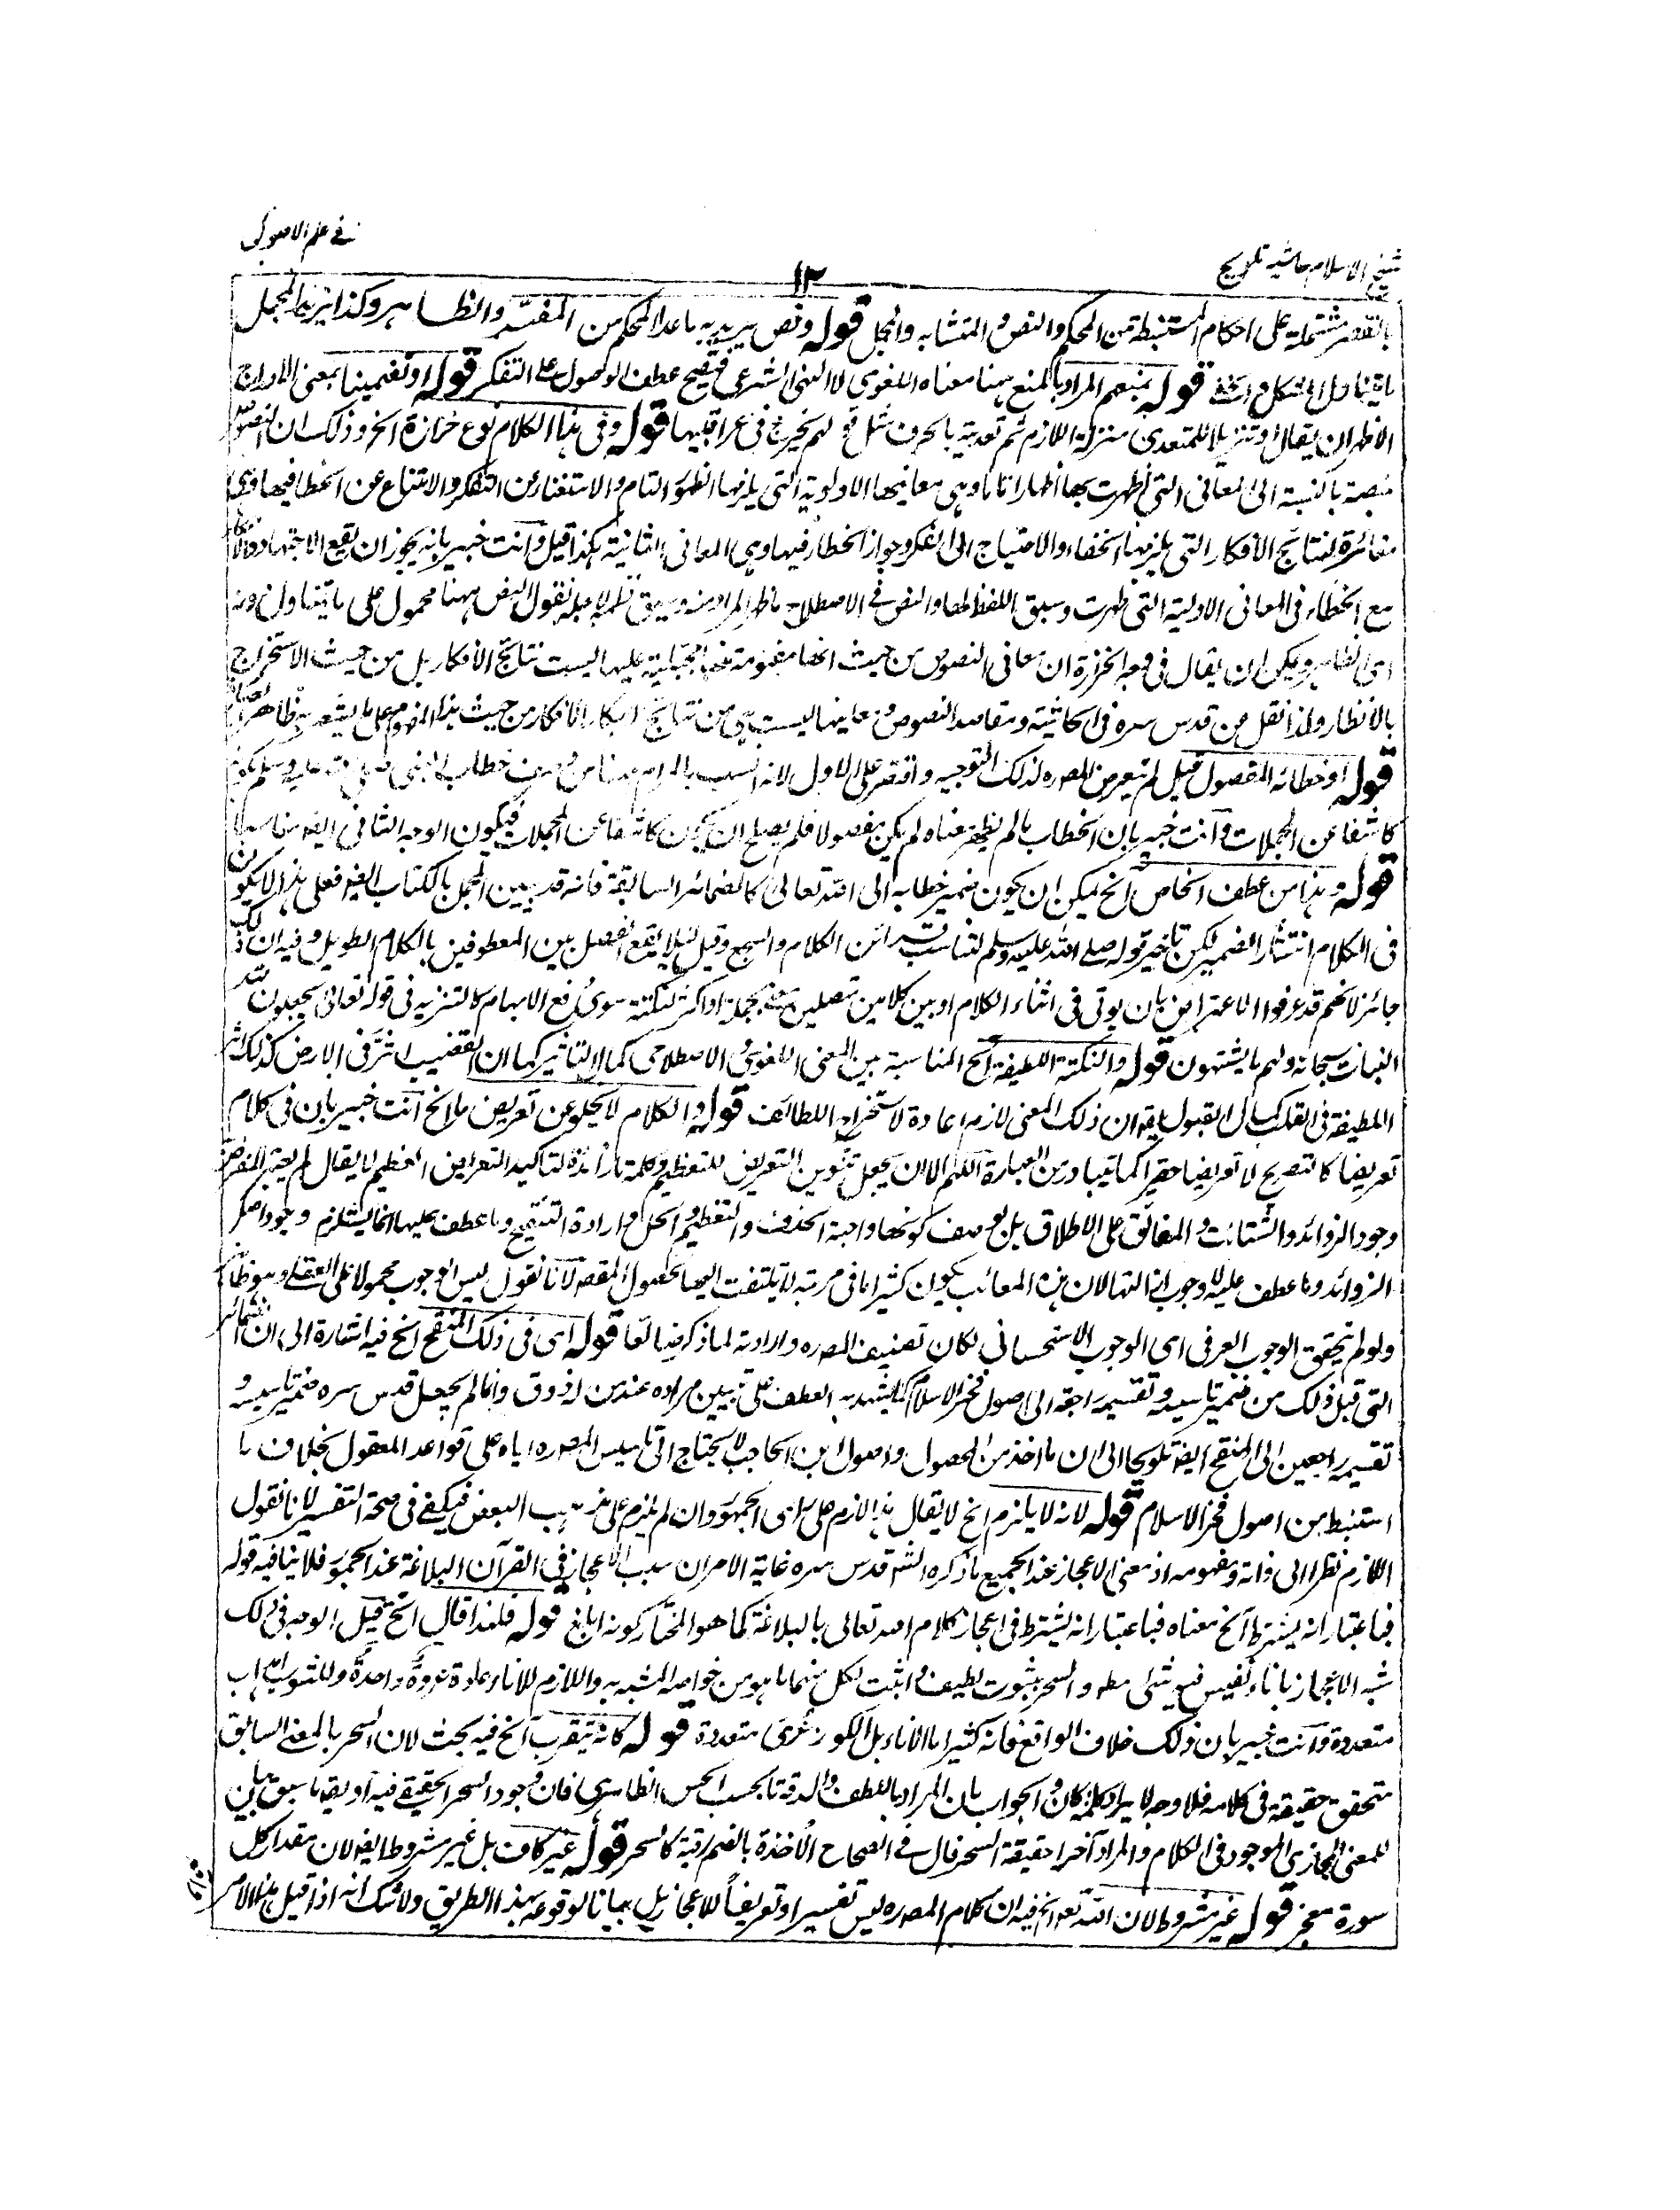 شيخ الاسلام حاشيه تلويح
١٢
في علم الاصول
بالقصر مشتملة على احكام المستنبطة من المحكم والنص والمتشابه والمجمل قوله ونص يريد به ما عدا المحكم من المفسر والظاهر وكذا يريد بالمجمل
ما يتناول المشكل والخفي قوله بمنعهم المراد بالمنع ههنا معناه اللغوى لا النهى الشرعى فيصح عطف الوصول على التفكر قوله او تضمينا بمعنى الادراج
الاظهر ان يقال او تنزيلا للمتعدى منزلة اللازم ثم تعديته بالحرف مثل قوله يجرح فى عراقيبها قوله وفى هذا الكلام نوع حزازة الخ وذلك ان النصوص
منصة بالنسبة الى المعانى التى اظهرت بها اظهارا تاما وهى معانيها الاولوية التى يلزمها الظهور التام والاستغناء عن التفكر والامتناع عن الخطأ فيها وهى
مغائرة لنتائج الافكار التى يلزمها الخفاء والاحتياج الى الفكر وجواز الخطأ فيها وهى المعانى الثانية هكذا قيل وانت خبير بانه يجوز ان يقع الاجتهاد والافكار
مع الخطاء فى المعانى الاولية التى ظهرت وسيق اللفظ لها والنص فى الاصطلاح ما ظهر المراد منه وسيق الكلام لاجله نقول النص ههنا محمول على ما يتناول دونه
اى الظاهر ويمكن ان يقال فى وجه الحزازة ان معانى النصوص من حيث انها مفهومة منها مجتلية عليها ليست نتائج الافكار بل من حيث الاستخراج
بالانظار ولذا نقل عن قدس سره فى الحاشية ومقاصد النصوص ومعانيها ليست هى من نتائج ابكار الافكار من حيث هذا المفهوم على ما يشعر به ظاهر العبارة
قوله او خطابه المفصول قيل لم يتعرض المصره لذلك التوجيه واقتصر على الاول لانه انسب بالمرام ههنا من خطاب النبى صلى الله عليه وسلم لكونه
كاشفا عن المجملات وانت خبير بان الخطاب ما لم يظهر معناه لم يكن مفصولا فلم يصلح ان يكون كاشفا عن المجملات فيكون الوجه الثانى ايضا مناسبا
قوله وهذا من عطف الخاص الخ يمكن ان يكون ضمير خطابه الى الله تعالى كالضمائر السابقة فانه قد يبين المجمل بالكتاب ايضا فعلى هذا لا يكون
فى الكلام انتشار الضمير لكن تاخير قوله صلى الله عليه وسلم لتناسب قرائن الكلام والسجع وقيل لئلا يقع الفصل بين المعطوفين بالكلام الطويل وفيه ان ذلك
جائز لانهم قد عرفوا الاعتراض بان يوتى فى اثناء الكلام او بين كلامين متصلين معنى بجملة او اكثر لنكتة سوى دفع الابهام كالتنزيه فى قوله تعالى يجعلون لله
البنات سبحانه ولهم ما يشتهون قوله والنكتة اللطيفة الخ المناسبة بين المعنى اللغوى والاصطلاحى كمال التاثير كما ان القضيب اثر فى الارض كذلك اثر
اللطيفة فى القلب كمال القبول ان ذلك المعنى لازم عادة لاستخراج اللطائف قوله والكلام لا يخلو عن تعريض ما الخ انت خبير بان فى كلام
تعريضا كالتصريح لا تعريضا حقيرا كما يتبادر من العبارة اللهم الا ان يجعل تنوين التعريض للتعظيم وكلمة ما زائدة لتاكيد التعريض العظيم لا يقال لم يعتبر المعترض
وجود الزوائد والشتائت والمغالق على الاطلاق بل بوصف كونها واجبة الحذف والنظم والحل وارادة التنقيح وما عطف عليها انما يستلزم وجود اصل
الزوائد وما عطف عليه لا وجوب ازالتها لان هذه المعائب يكون كثيرا ما فى مرتبة لا يلتفت اليها لحصول المقصد لانا نقول ليس الوجوب محمولا على العقلى وهو ظاهر
ولو لم يتحقق الوجوب العرفى اى الوجوب الاستحسانى لكان تصنيف المصره وارادته لما ذكر ضائعا قوله اى فى ذلك المنقح الخ فيه اشارة الى ان الضمائر
التى قبل ذلك من ضمير تاسيسه وتقسيمه راجعة الى اصول فخر الاسلام كما يشهد به العطف على تبيين مراده عند من له ذوق وانما لم يجعل قدس سره ضمير تاسيسه و
تقسيمه راجعين الى المنقح ايضا تلويحا الى ان ما اخذ من المحصول واصول ابن الحاجب لا يحتاج الى تاسيس المصره اياه على قواعد المعقول بخلاف ما
استنبط من اصول فخر الاسلام قوله لانه لا يلزم الخ لا يقال هذا لازم على راى الجمهور وان لم يلزم على مذهب البعض فيكفى فى صحة التفسير لانا نقول
اللازم نظرا الى ذاته ومفهومه اذ معنى الاعجاز عند الجميع ما ذكره الشره قدس سره غاية الامر ان سبب الاعجاز فى القرآن البلاغة عند الجمهور فلا ينافيه قوله
فباعتبار انه يشترط الخ معناه فباعتبار انه يشترط فى اعجاز كلام الله تعالى بالبلاغة كما هو المختار كونه ابلغ قوله فلهذا قال الخ قيل الوجه فى ذلك
شبه الاعجاز باناء نفيس والسحر بثوب لطيف واثبت لكل منهما ما هو من خواص المشبه به واللازم للاناء عادة عروة واحدة وللثوب اهداب
متعددة وانت خبير بان ذلك خلاف الواقع فانه كثيرا ما للاناء بل الكوز عرى متعددة قوله كانه يتقرب الخ فيه بحث لان السحر بالمعنى السابق
متحقق حقيقة فى كلامه فلا وجه لايراد كلمة كان والجواب بان المراد باللطف والدقة ما بحسب الحس الظاهرى فان وجود السحر الحقيقى فيه او يقال ما سبق بيان
للمعنى المجازى الموجود فى الكلام والمراد آخرا حقيقة السحر قال فى الصحاح الاخذة بالضم رقية كالسحر قوله غير كاف بل غير مشروط ايضا لان مقدار كل
سورة معجز قوله غير مشروط لان الله تعالى الخ فيه ان كلام المصره ليس تفسيرا وتعريفا للاعجاز بل بيانا لوقوعه بهذا الطريق ولا شك انه اذا قيل هذا الامر